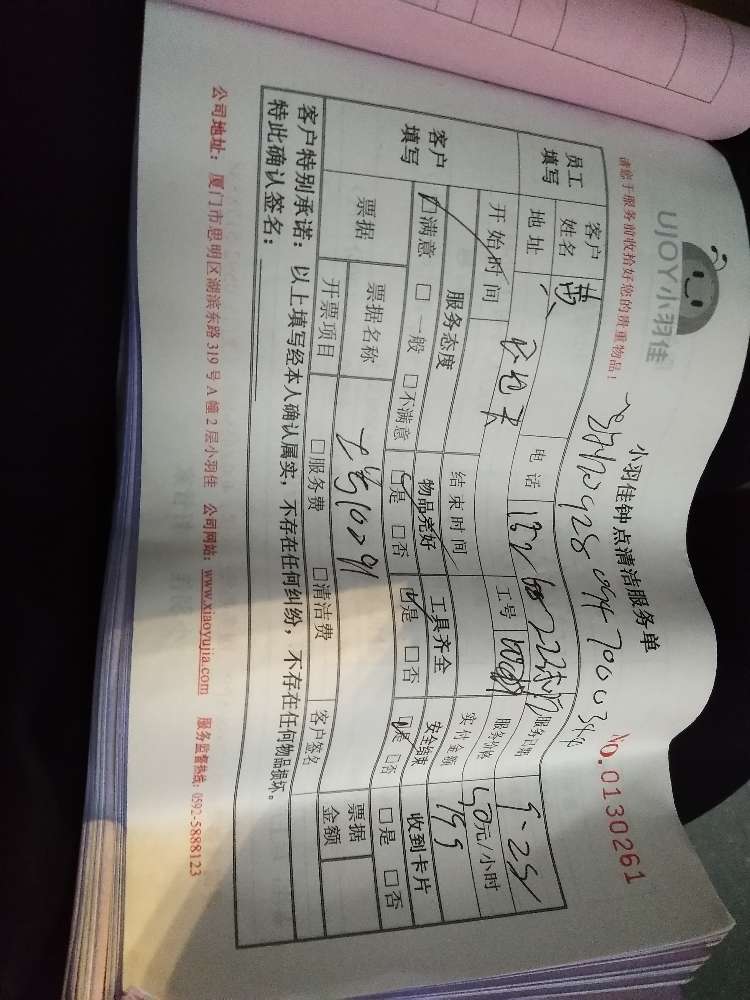 UJOY小羽佳
小羽佳钟点清洁服务单
No.0130261
请您于服务前收拾好您的贵重物品！
员工填写
客户姓名
黄
电话
服务日期
9.25
地址
工号
服务价格
50元/小时
开始时间
结束时间
实付金额
199
客户填写
服务态度
物品完好
工具齐全
安全结束
收到卡片
□满意 □一般 □不满意
□是 □否
□是 □否
□是 □否
□是 □否
票据
票据名称
票据金额
开票项目
□服务费
□清洁费
客户签名
客户特别承诺：以上填写经本人确认属实，不存在任何纠纷，不存在任何物品损坏。
特此确认签名：
公司地址：厦门市思明区湖滨东路319号A幢2层小羽佳 公司网站：www.xiaoyujia.com 服务监督热线：0592-5888123